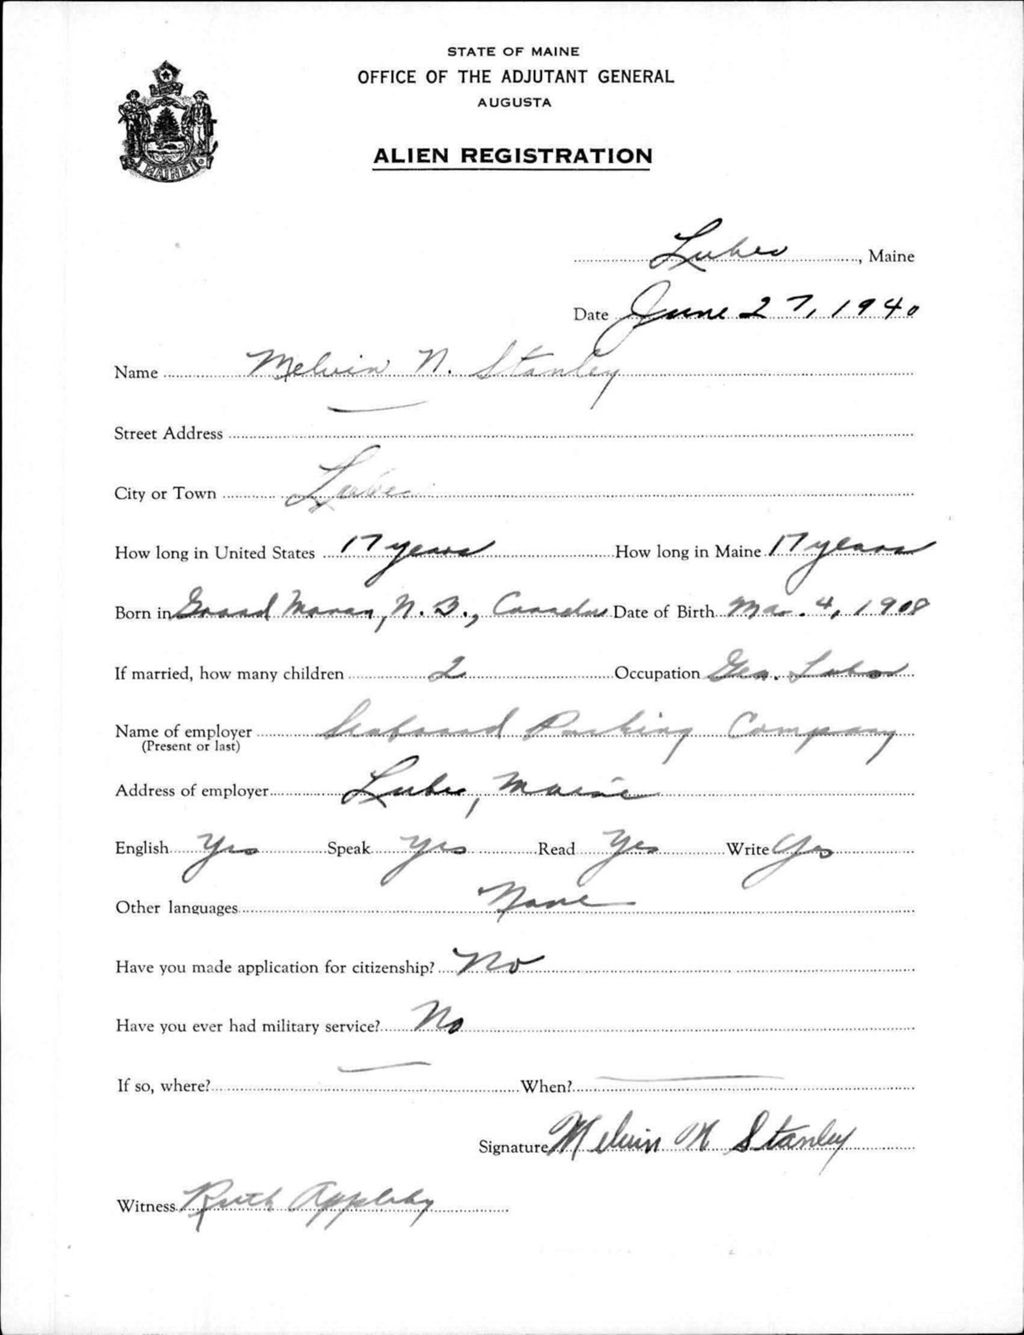 STATE OF MAINE
OFFICE OF THE ADJUTANT GENERAL
AUGUSTA
ALIEN REGISTRATION
MAINE
Lubec, Maine
Date June 27, 1940
Name Melvin N. Stanley
Street Address —
City or Town Lubec
How long in United States 17 years How long in Maine 17 years
Born in Grand Manan, N. B., Canada Date of Birth Mar. 4, 1908
If married, how many children 2 Occupation Gen. Labor
Name of employer Seaboard Packing Company
(Present or last)
Address of employer Lubec, Maine
English Yes Speak Yes Read Yes Write Yes
Other languages None
Have you made application for citizenship? No
Have you ever had military service? No
If so, where? — When? —
Signature Melvin N Stanley
Witness Ruth Appleby